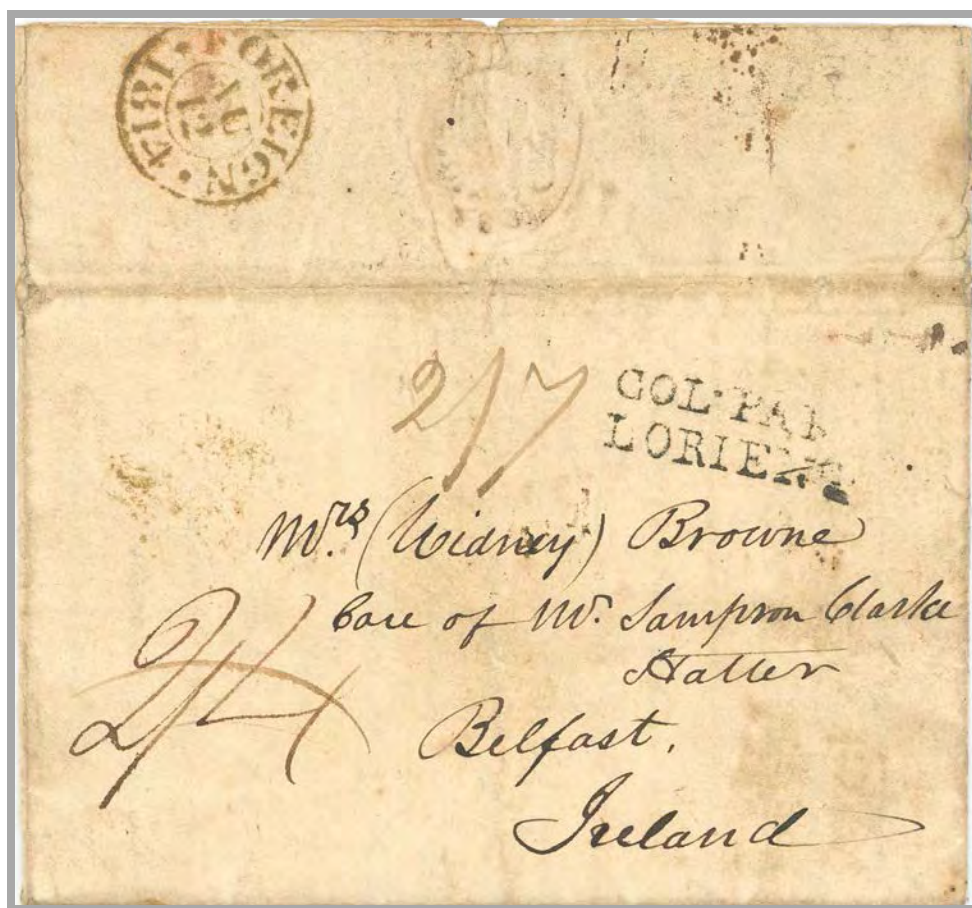 FOREIGN · 1814 ·
AU
12
2/7
COL·PAR
LORIENT
Mrs. (Widney) Browne
Care of Mr. Sampson Clarke
Hatter
Belfast.
Ireland
2/4